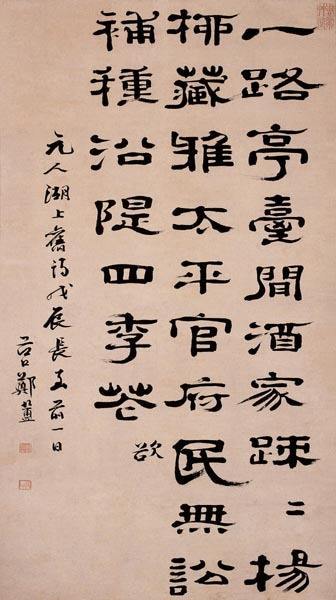 一路亭臺間酒家疎〻楊
桺藏雅太平官府民無訟
補種沿隄四季花 欲
元人湖上舊詩戊辰長至前一日
谷口鄭簠